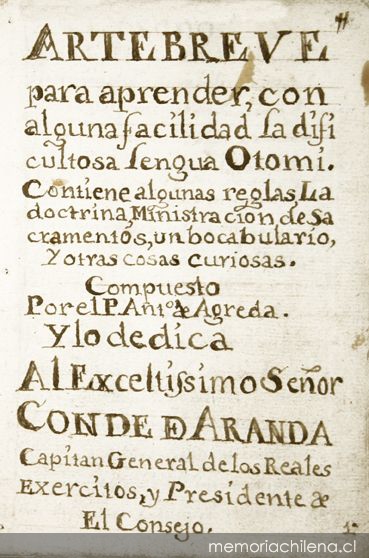 ARTE BREVE
para aprender, con
alguna facilidad la difi
cultosa lengua Otomi.
Contiene algunas reglas, La
doctrina, Ministracion de Sa
cramentos, un bocabulario,
Y otras cosas curiosas.
Compuesto
Por el P. Antº. de Agreda.
Y lo dedica
Al Exceltissimo Señor
CONDE D ARANDA
Capitan General de los Reales
Exercitos, y Presidente de
El Consejo.
memoriachilena.cl